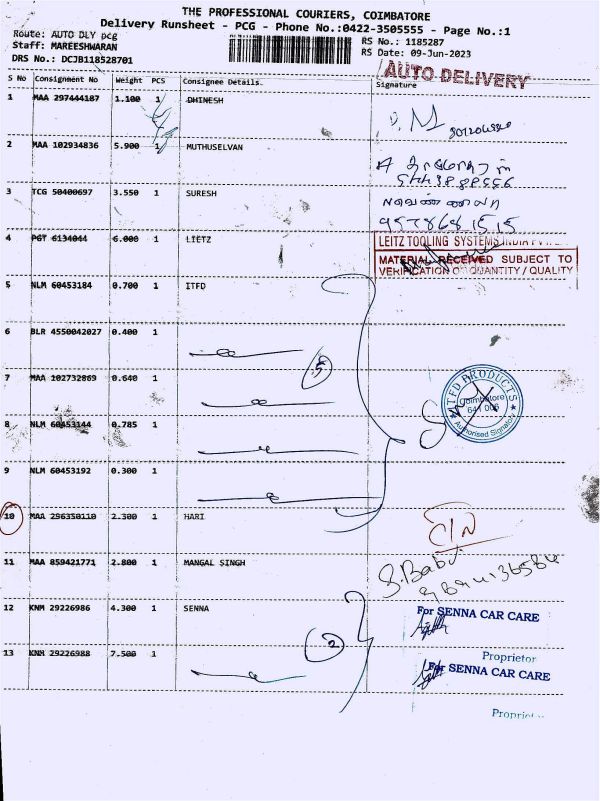 THE PROFESSIONAL COURIERS, COIMBATORE
Delivery Runsheet - PCG - Phone No.:0422-3505555 - Page No.:1
Route: AUTO DLY pcg
Staff: MAREESHWARAN
DRS No.: DCJB118528701
RS No.: 1185287
RS Date: 09-Jun-2023
AUTO DELIVERY
S No Consignment No Weight PCS Consignee Details. Signature
1 MAA 297444187 1.100 1 DHINESH
2 MAA 102934836 5.900 1 MUTHUSELVAN
3 TCG 50400697 3.550 1 SURESH
9578681515
4 PGT 6134044 6.000 1 LIETZ
LEITZ TOOLING SYSTEMS INDIA PVT
MATERIAL RECEIVED SUBJECT TO
VERIFICATION OF QUANTITY / QUALITY
5 NLM 60453184 0.700 1 ITFD
6 BLR 4550042027 0.400 1
5
7 MAA 102732869 0.640 1
ITFD PRODUCTS
Coimbatore
641 006
Authorised Signatory
8 NLM 60453144 0.785 1
9 NLM 60453192 0.300 1
10 MAA 296350110 2.300 1 HARI
11 MAA 859421771 2.800 1 MANGAL SINGH
S.Babu
12 KNM 29226986 4.300 1 SENNA
For SENNA CAR CARE
2
Proprietor
13 KNR 29226988 7.500 1
For SENNA CAR CARE
Proprietor